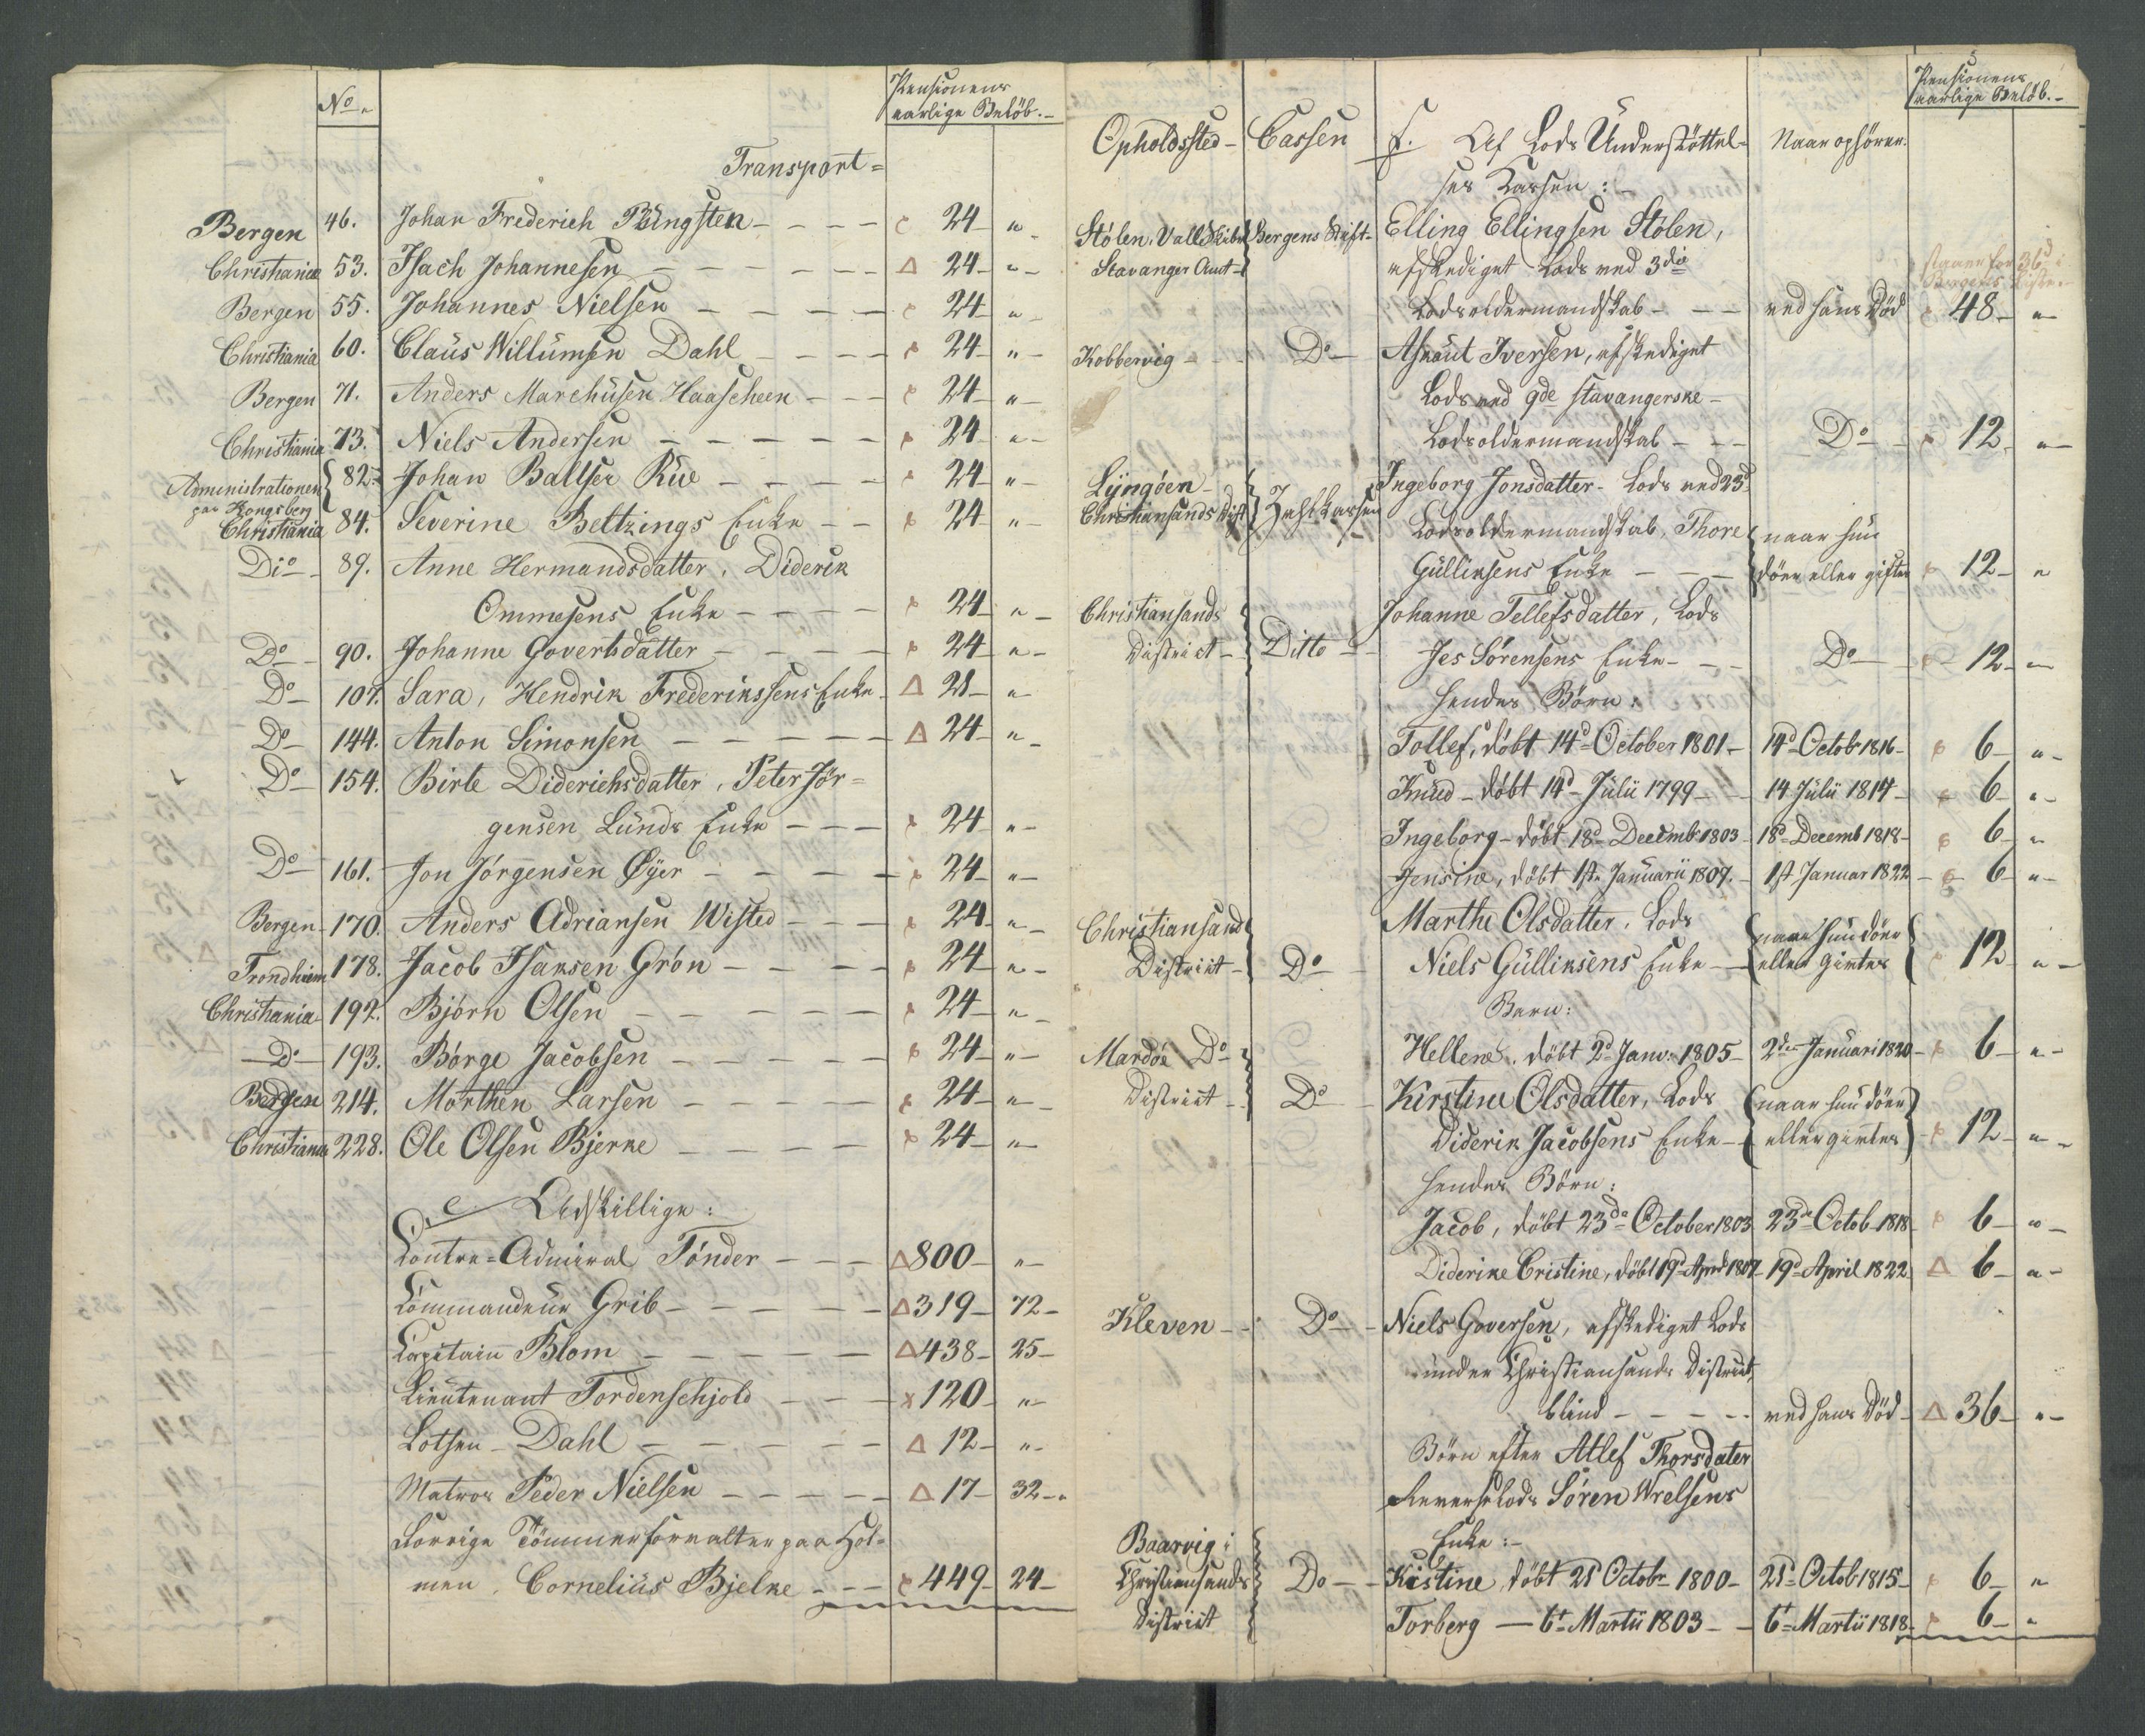 No
Pensionens
aarlige Beløb.
Transport
Bergen 46. Johan Frederich Pfingsten - 24 "
Christiania 53. Isach Johannesen - 24 "
Bergen 55. Johannes Nielsen - 24 "
Christiania 60. Claus Willumsen Dahl - 24 "
Bergen 71. Anders Marchusen Haascheen - 24 "
Christiania 73. Niels Andersen - 24 "
Administrationen paa Kongsberg 82. Johan Baltser Rüe - 24 "
Christiania 84. Severine Beltzings Enke - 24 "
Dio 89. Anne Hermandsdatter, Diderik
Ommesens Enke - 24 "
Do 90. Johanne Govertsdatter - 24 "
Do 107. Sara, Hendrik Frederikssens Enke - 28 "
Do 144. Anton Simonsen - 24 "
Do 154. Birte Diderichsdatter, Peter Jör=
gensen Lunds Enke - 24 "
Do 161. Jon Jörgensen Øyer - 24 "
Bergen 170. Anders Adriansen Wisted - 24 "
Trondhiem 178. Jacob Isaksen Grön - 24 "
Christiania 192. Bjørn Olsen - 24 "
Do 193. Börge Jacobsen - 24 "
Bergen 214. Morthen Larsen - 24 "
Christiania 228. Ole Olsen Bjerke - 24 "
e Adskillige:
Contra-Admiral Tönder - 800 "
Commandeur Grib - 319 72
Capitain Blom - 438 25
Lieutenant Tordenschjold - 120 "
Lotsen Dahl - 12 "
Matros Peder Nielsen - 17 32
Forrige Tømmerforvalter paa Hol=
men, Cornelius Bjelke - 449 24
Pensionens
aarlige Beløb.
Opholdssted Cassen f. Af Lods Understöttel= Naar ophører.
ses Kassen:
Stölen, Stavanger Amt Bergens Stift Elling Ellingsen Stölen,
afskediget Lods ved 3die
Lodsoldermandskab - ved hans Död 48 "
Kobbervig Do Asnaut Iversen, afskediget
Lods ved 9de stavangerske
Lodsoldermandskab - Do 12 "
Lyngöen Christiansands Dist Zahlkassen Ingeborg Jonsdatter - Lods ved 23d
Lodsoldermandskab, Thore naar hun
Gulliksens Enke - döer eller gifter 12 "
Christiansands Johanne Tellefsdatter, Lods
District Ditto Jes Sörensens Enke - Do 12 "
hendes Börn:
Tollef, döbt 14d October 1801 - 14d Octob 1816 - 6 "
Knud - döbt 14d Julii 1799 - 14 Julii 1814 - 6 "
Ingeborg - döbt 18d Decemb 1803 - 18d Decemb 1818 - 6 "
Jensine, döbt 1st Januarii 1807. - 1st Januar 1822 - 6 "
Christiansand Marthe Olsdatter, Lods naar hun döer
District Do Niels Gulliksens Enke - eller giftes 12 "
Barn:
Hellene, döbt 2d Janv: 1805 - 2den Januari 1820 - 6 "
Mardöe Do
District Do Kirstine Olsdatter, Lods naar hun döer
Diderik Jacobsens Enke - eller giftes 12 "
hendes Börn:
Jacob, döbt 23de October 1803 23de Octob 1818 6 "
Diderike Cristine, döbt 19d April 1807 - 19d April 1822 6 "
Kleven Do Niels Goversen, afskediget Lods
under Christiansands District,
blind - ved hans Död 36 "
Börn efter Atlef Thorsdater
Reverselods Sören Wrelsens
Enke:
Baarvig i Christiansands District Do Kistine, döbt 21 Octobr 1800 - 21d Octob 1815 - 6 "
Torberg - 6t Martii 1803 - 6t Martii 1818 - 6 "